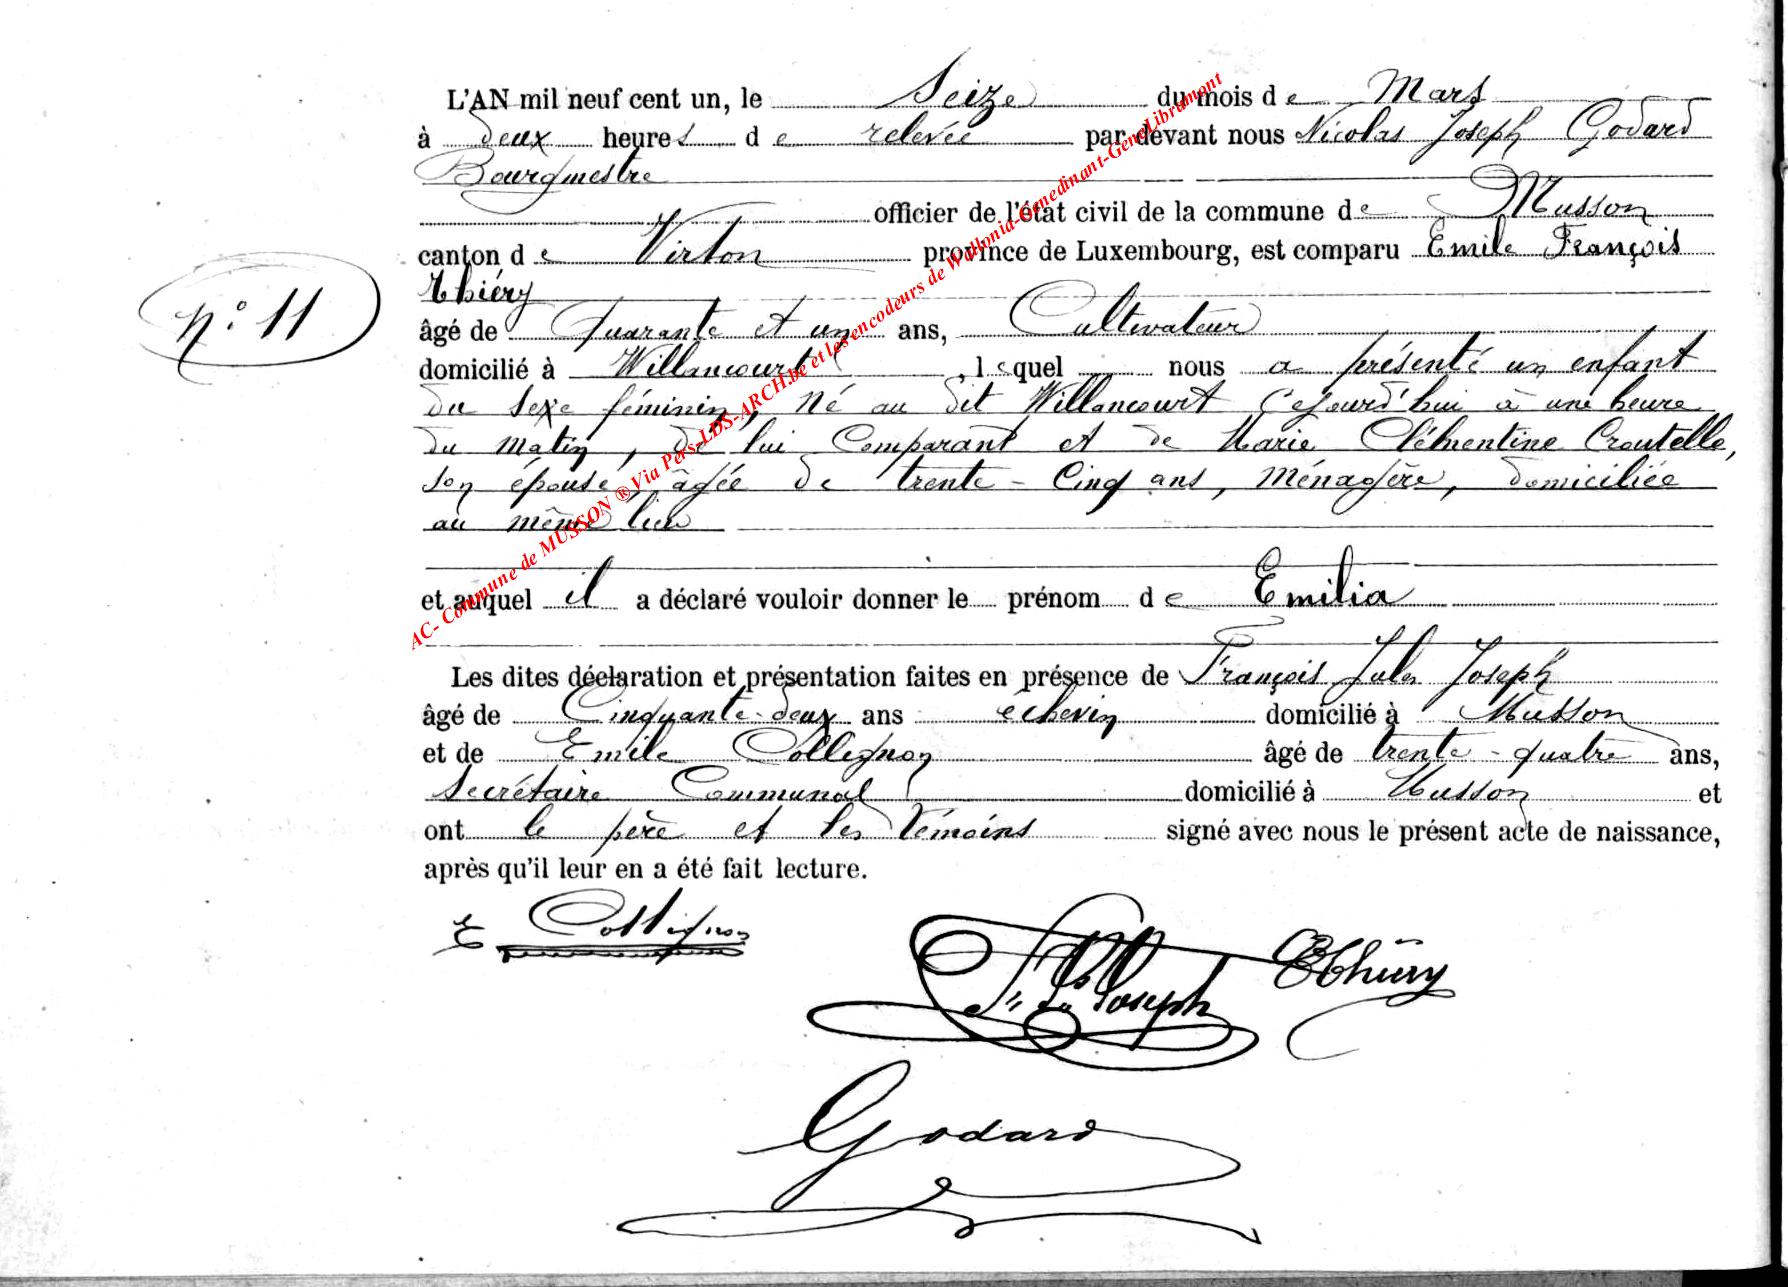 L'AN mil neuf cent un, le Seize du mois de Mars
à deux heures de relevée par devant nous Nicolas Joseph Godard
Bourgmestre
officier de l'état civil de la commune de Musson
canton de Virton province de Luxembourg, est comparu Emile François
Thiéry
n° 11
âgé de quarante et un ans, Cultivateur
domicilié à Willancourt, lequel nous a présenté un enfant
du sexe féminin, Né au dit Willancourt Cejourd'hui à une heure
du matin, de lui Comparant et de Marie Clémentine Croutelle,
son épouse, âgée de trente-Cinq ans, Ménagère, domiciliée
au même lieu
et auquel il a déclaré vouloir donner le prénom de Emilia
Les dites déclaration et présentation faites en présence de François Jules Joseph
âgé de Cinquante-deux ans échevin domicilié à Musson
et de Emile Collignon âgé de trente-quatre ans,
Secrétaire Communal domicilié à Musson et
ont le père et les témoins signé avec nous le présent acte de naissance,
après qu'il leur en a été fait lecture.
E Collignon
Joseph
Thiéry
Godard
AC- Commune de MUSSON ® Via Pers-LDS-ARCH.be et les encodeurs de Wallonia-Genedinant-GeneLibramont